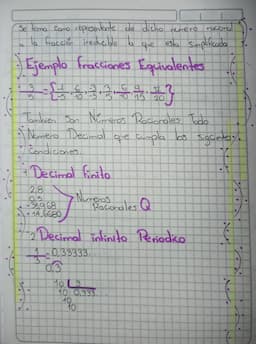 Se toma como representante de dicho numero racional
a la fracción irreducible la que esta simplificada
Ejemplo fracciones Equivalentes
También son Números Racionales Todo
Número Decimal que cumpla las siguientes
Condiciones.
1 Decimal finito
2,8
0,3
-369,68
+14,6680
Números
Racionales Q
2 Decimal infinito Periodico
1/3 = 0,33333.
0,3
10 3
10 0,333
10
10